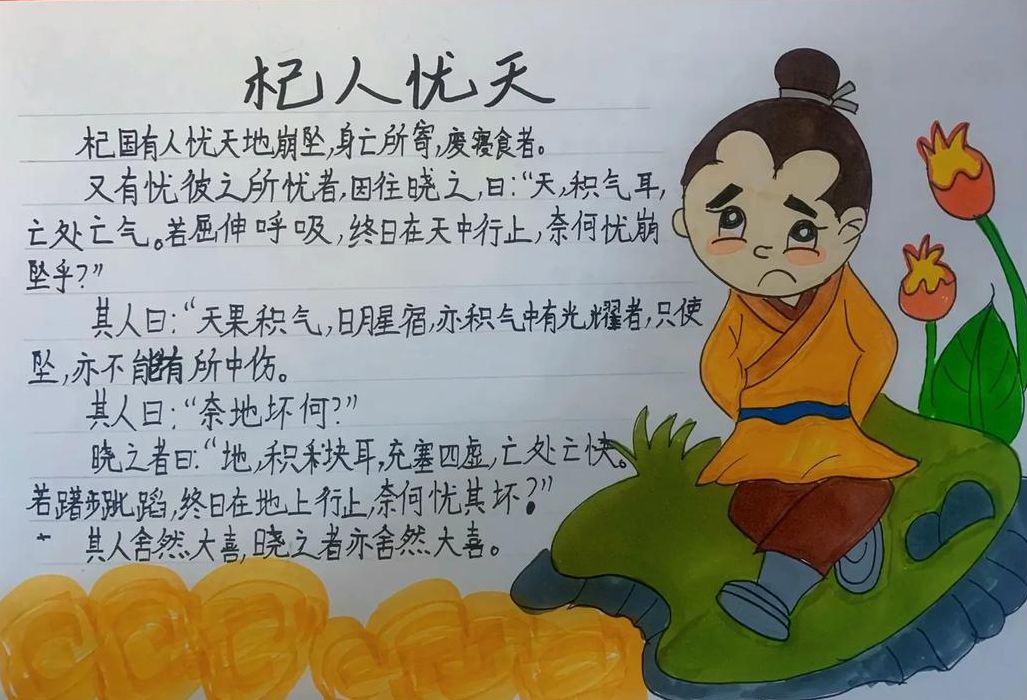 杞人忧天
杞国有人忧天地崩坠,身亡所寄,废寝食者。
又有忧彼之所忧者,因往晓之,曰:“天,积气耳,
亡处亡气。若屈伸呼吸,终日在天中行止,奈何忧崩
坠乎?”
其人曰:“天果积气,日月星宿,亦积气中有光耀者,只使
坠,亦不能有所中伤。
其人曰:“奈地坏何?”
晓之者曰:“地,积块耳,充塞四虚,亡处亡快。
若躇步跐蹈,终日在地上行止,奈何忧其坏?”
其人舍然大喜,晓之者亦舍然大喜。